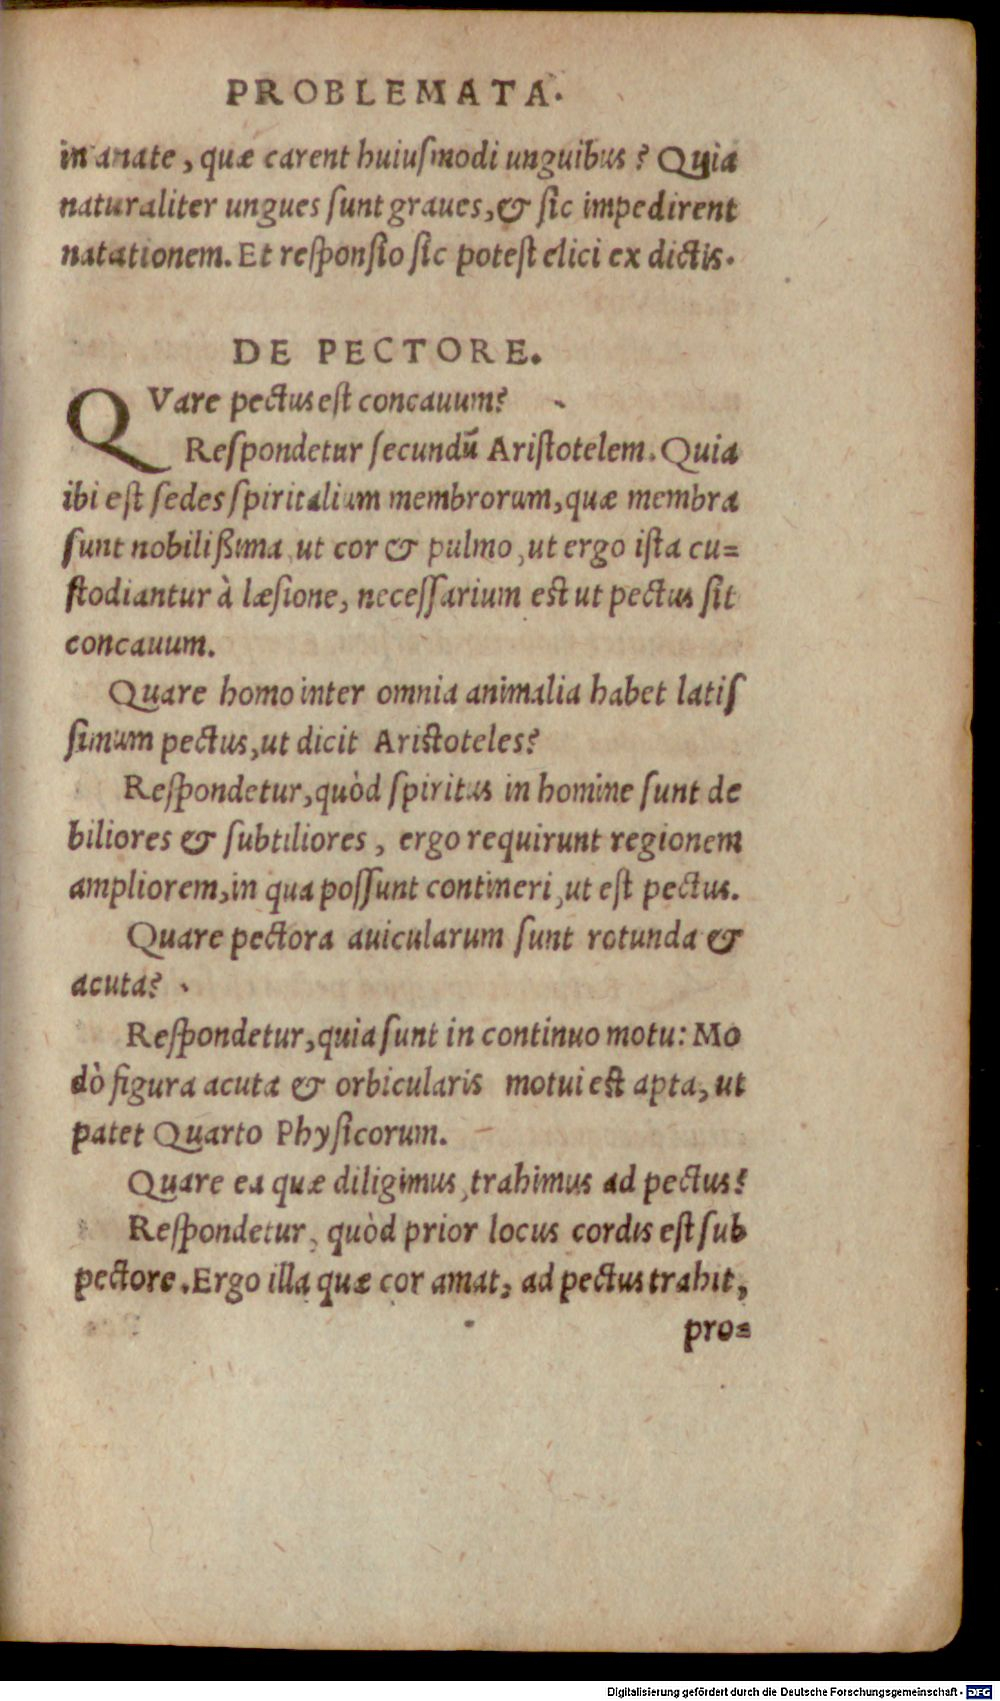 PROBLEMATA.
in anate, quæ carent huiuſmodi unguibus? Quia
naturaliter ungues ſunt graues, & ſic impedirent
natationem. Et reſponſio ſic poteſt elici ex dictis.
DE PECTORE.
QVare pectus eſt concauum?
Reſpondetur ſecundū Ariſtotelem. Quia
ibi eſt ſedes ſpiritalium membrorum, quæ membra
ſunt nobilißima, ut cor & pulmo, ut ergo iſta cu=
ſtodiantur à læſione, neceſſarium eſt ut pectus ſit
concauum.
Quare homo inter omnia animalia habet latiſ
ſimum pectus, ut dicit Ariſtoteles?
Reſpondetur, quòd ſpiritus in homine ſunt de
biliores & ſubtiliores, ergo requirunt regionem
ampliorem, in qua poſſunt contineri, ut eſt pectus.
Quare pectora auicularum ſunt rotunda &
acuta?
Reſpondetur, quia ſunt in continuo motu: Mo
dò figura acuta & orbicularis motui eſt apta, ut
patet Quarto Phyſicorum.
Quare ea quæ diligimus, trahimus ad pectus?
Reſpondetur, quòd prior locus cordis eſt ſub
pectore. Ergo illa quæ cor amat, ad pectus trahit,
pro=
Digitalisierung gefördert durch die Deutsche Forschungsgemeinschaft - DFG